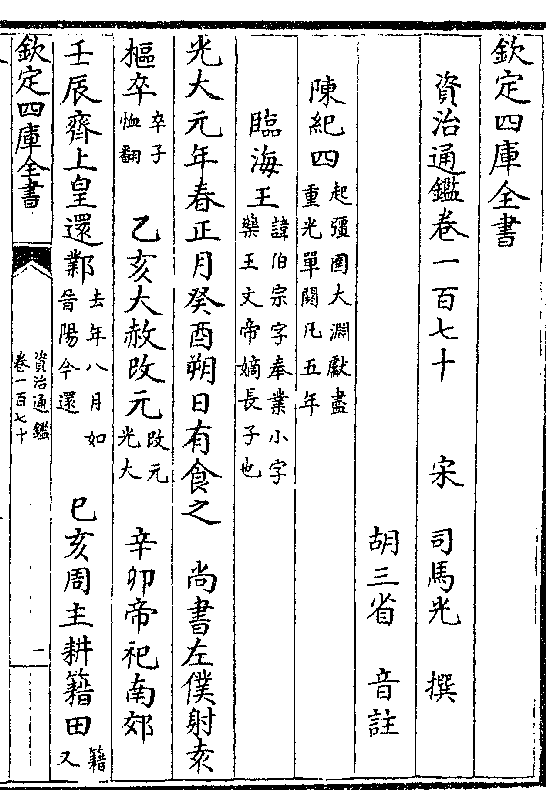 欽定四庫全書
資治通鑑卷一百七十 宋 司馬光 撰
胡三省 音註
陳紀四 起彊圉大淵獻盡重光單閼凡五年
臨海王 諱伯宗字奉業小字藥王文帝嫡長子也
光大元年春正月癸酉朔日有食之 尚書左僕射袁
樞卒 卒子恤翻 乙亥大赦改元 改元光大 辛卯帝祀南郊
壬辰齊上皇還鄴 去年八月如晉陽今還 己亥周主耕籍田 籍又
欽定四庫全書 資治通鑑卷一百七十 一